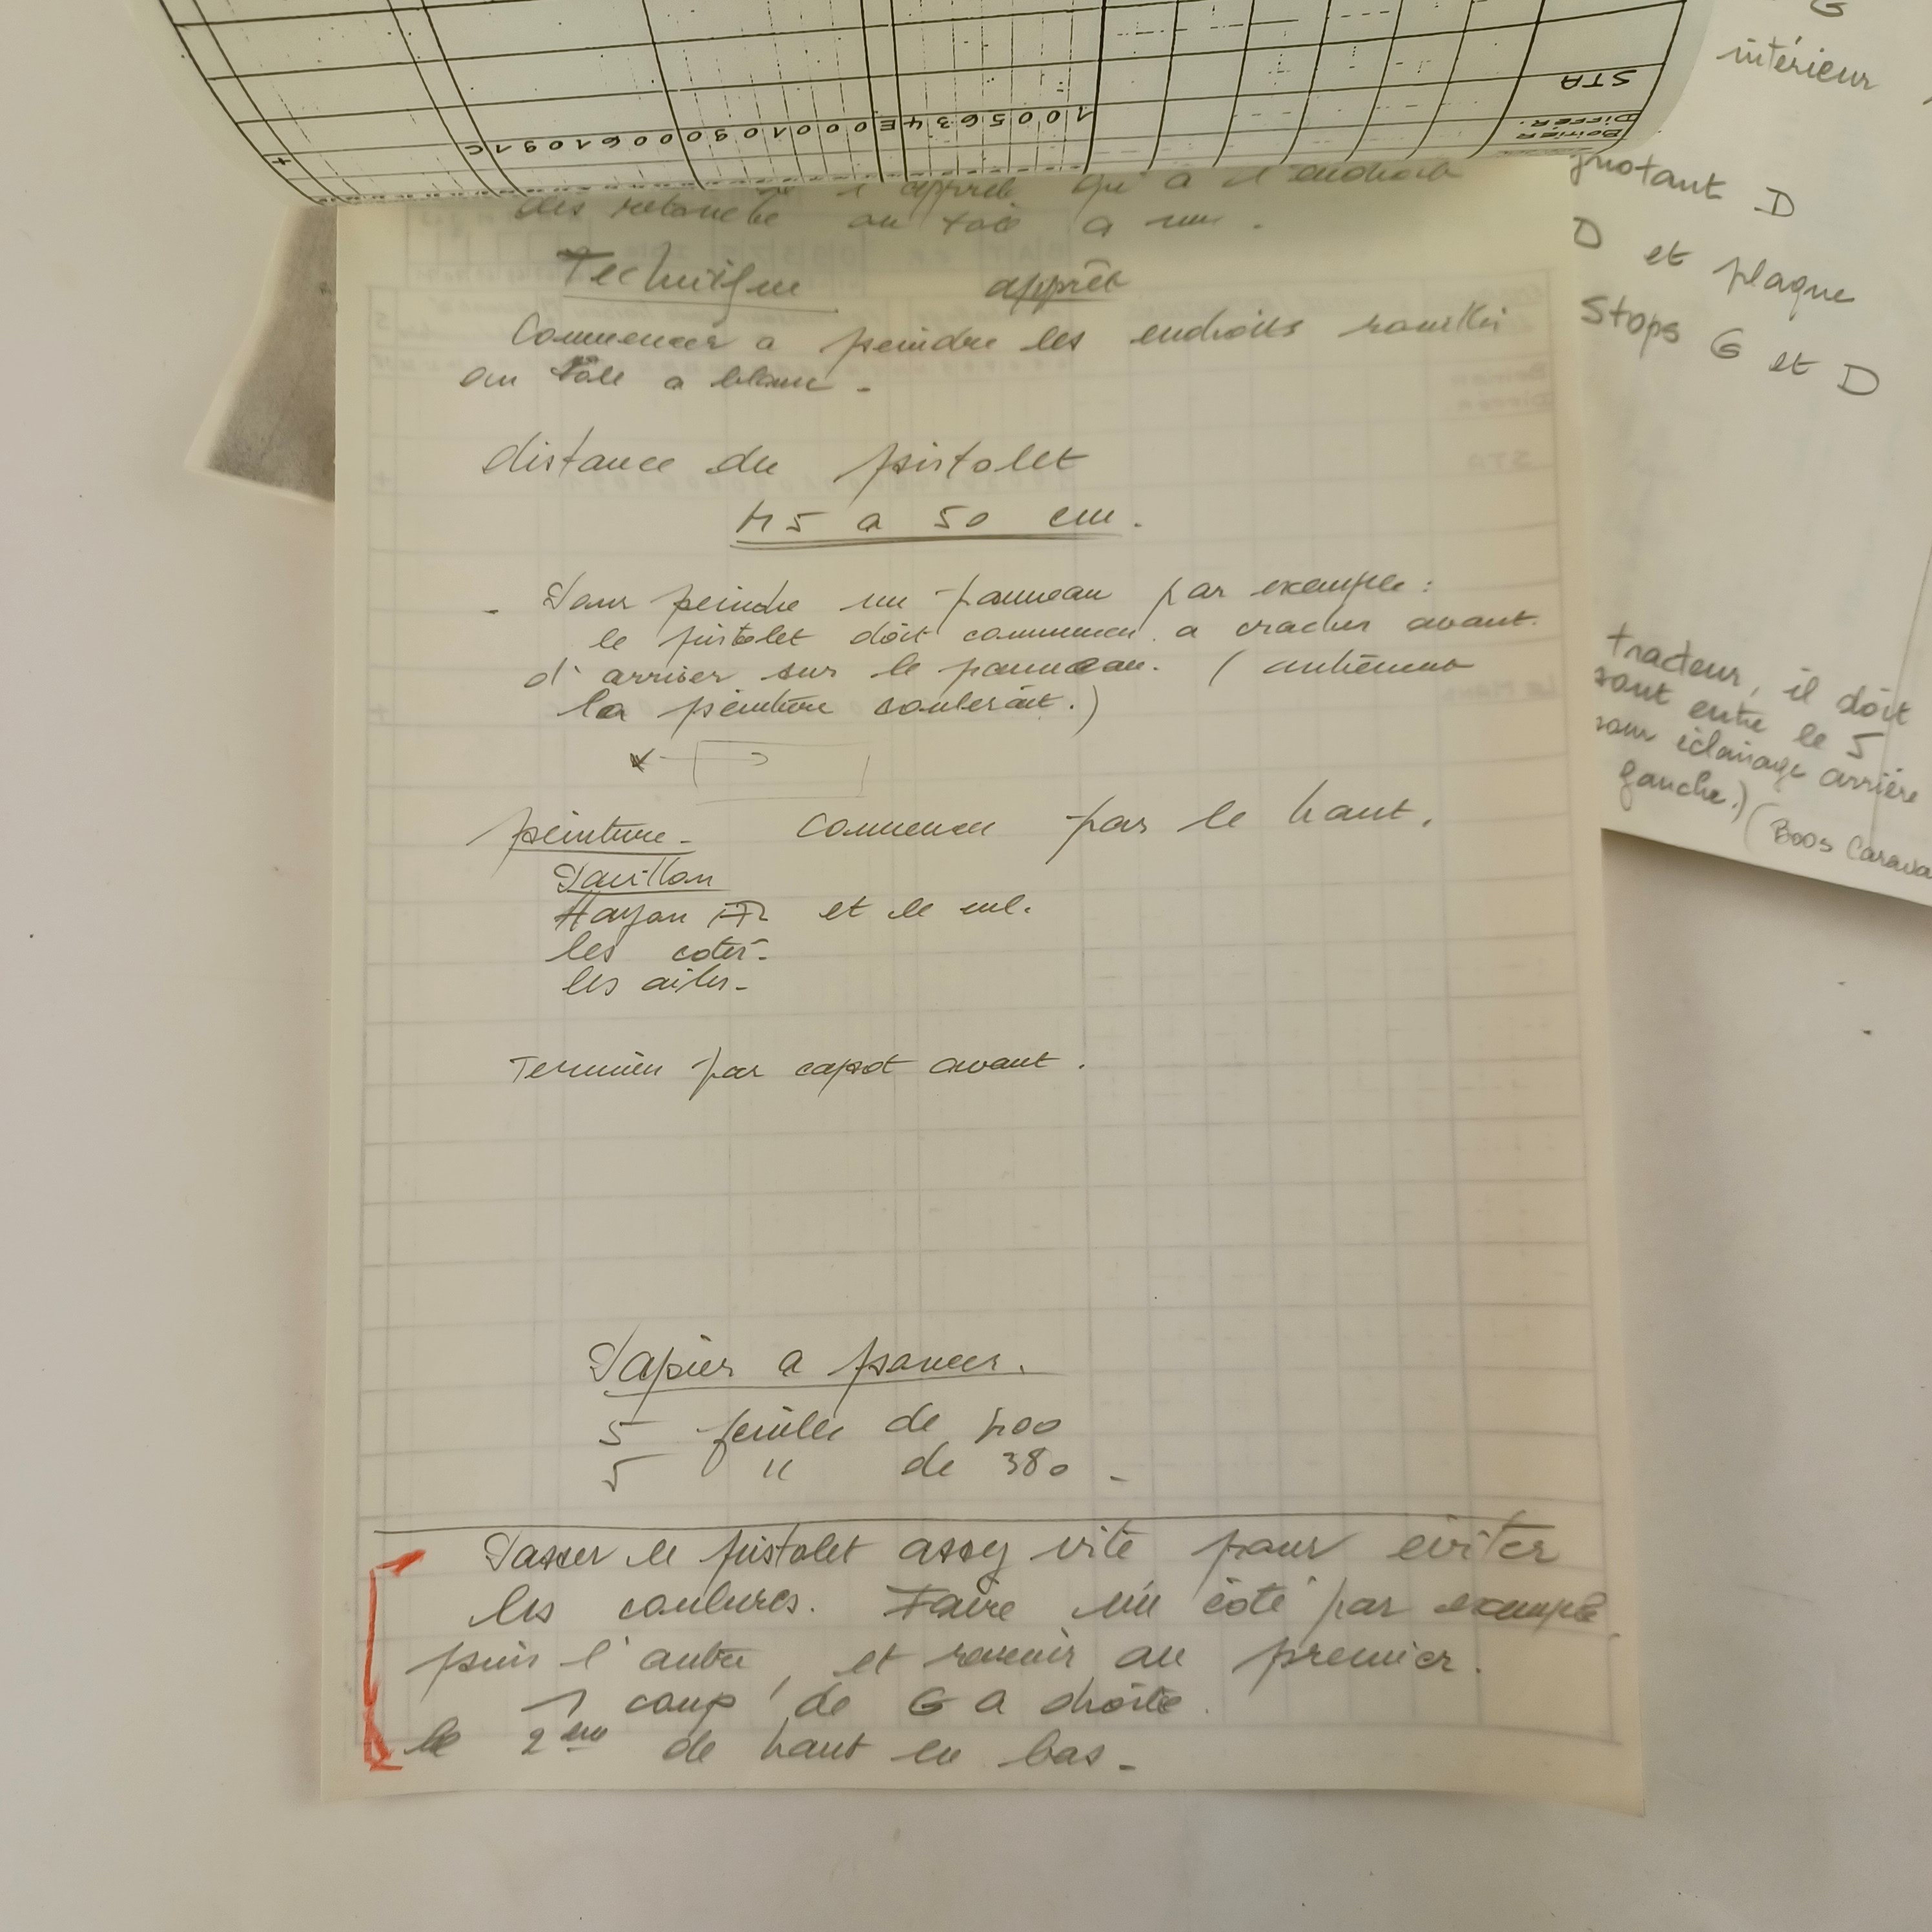 STA
BOITIER
DIFFER.
1005634E000109000610 91C
l'apprêt qu'a l'endroit
des retouche ou tole a nu.
Technique apprêt
Commencer a peindre les endroits rouillés
ou tôle a blanc -
distance du pistolet
45 a 50 cm.
- Pour peindre un panneau par exemple :
le pistolet doit commencer a cracher avant
d'arriver sur le panneau. ( autrement
la peinture coulerait.)
peinture - Commencer par le haut.
Pavillon
Hayon AR et le cul.
les cotés -
les ailes -
Terminer par capot avant .
Papier a poncer.
5 feuilles de 400
5 " de 380 -
Passer le pistolet assez vite pour éviter
les coulures. Faire un côté par exemple,
puis l'autre, et revenir au premier.
1 coup de G a droite.
le 2ème de haut en bas -
G
intérieur
gnotant D
D et plaque
Stops G et D
tracteur, il doit
sant entre le 5
sour éclairage arrière
gauche.)
(Boos Carava